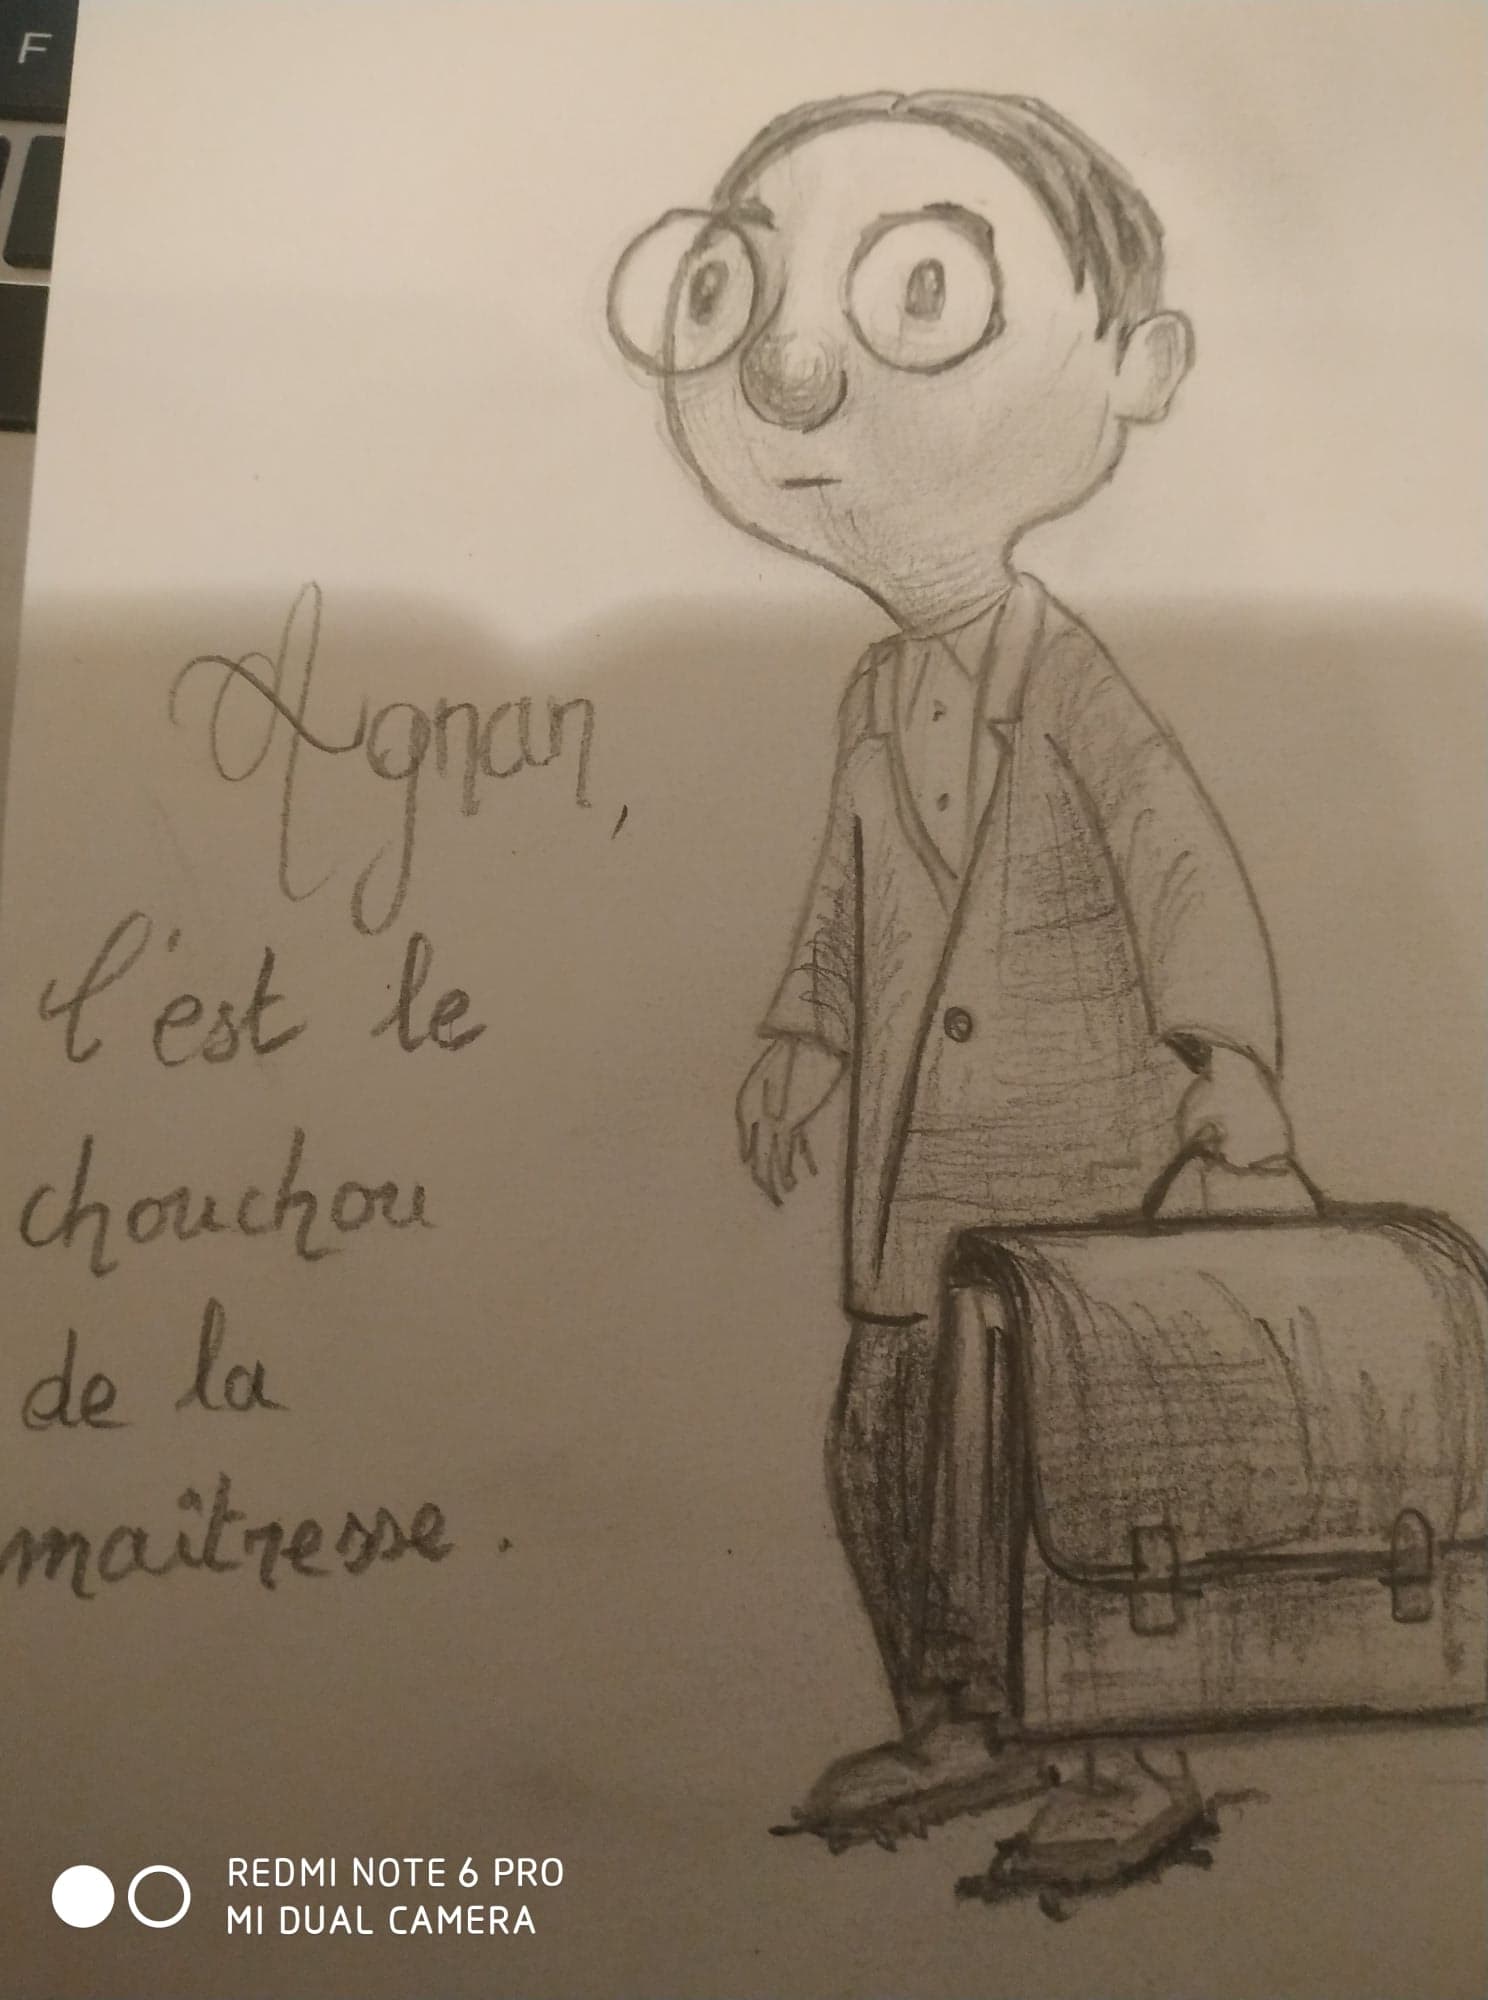 F
Agnan,
c'est le
chouchou
de la
maîtresse.
REDMI NOTE 6 PRO
MI DUAL CAMERA